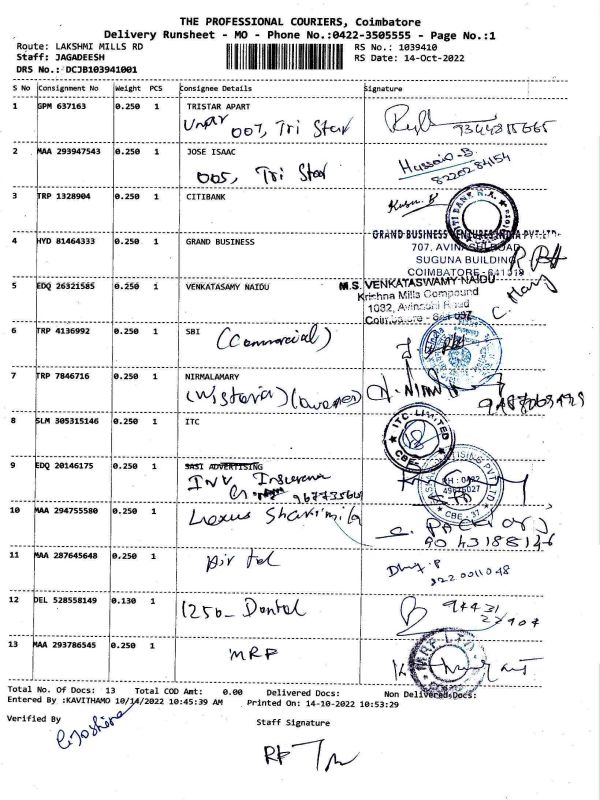 THE PROFESSIONAL COURIERS, Coimbatore
Delivery Runsheet - MO - Phone No.:0422-3505555 - Page No.:1
Route: LAKSHMI MILLS RD RS No.: 1039410
Staff: JAGADEESH RS Date: 14-Oct-2022
DRS No.: DCJB103941001
S No Consignment No Weight PCS Consignee Details Signature
1 GPM 637163 0.250 1 TRISTAR APART
007, Tri Star
2 MAA 293947543 0.250 1 JOSE ISAAC
005, Tri Star
Hussain-B.
8220284154
3 TRP 1328904 0.250 1 CITIBANK
CITI BANK N.A.
4 HYD 81464333 0.250 1 GRAND BUSINESS
GRAND BUSINESS VENTURES INDIA PVT.LTD.
707. AVINASHI ROAD
SUGUNA BUILDING
COIMBATORE - 641 018
5 EDQ 26321585 0.250 1 VENKATASAMY NAIDU
M.S. VENKATASWAMY NAIDU
Krishna Mills Compound
1082, Avinashi Road
6 TRP 4136992 0.250 1 SBI
(Commercial)
7 TRP 7846716 0.250 1 NIRMALAMARY
(Wistaria) (Owner)
8 SLM 305315146 0.250 1 ITC
ITC LIMITED
CBE
9 EDQ 20146175 0.250 1 SASI ADVERTISING
SASI ADVERTISING PVT LTD
PH : 0422
CBE - 37
10 MAA 294755580 0.250 1
Lexus Sharimila
9043188146
11 MAA 287645648 0.250 1
Air tel
12 DEL 528558149 0.130 1
1250- Dental
13 MAA 293786545 0.250 1
MRF
MRF LTD
Total No. Of Docs: 13 Total COD Amt: 0.00 Delivered Docs: Non Delivered Docs:
Entered By :KAVITHAMO 10/14/2022 10:45:39 AM Printed On: 14-10-2022 10:53:29
Verified By Staff Signature